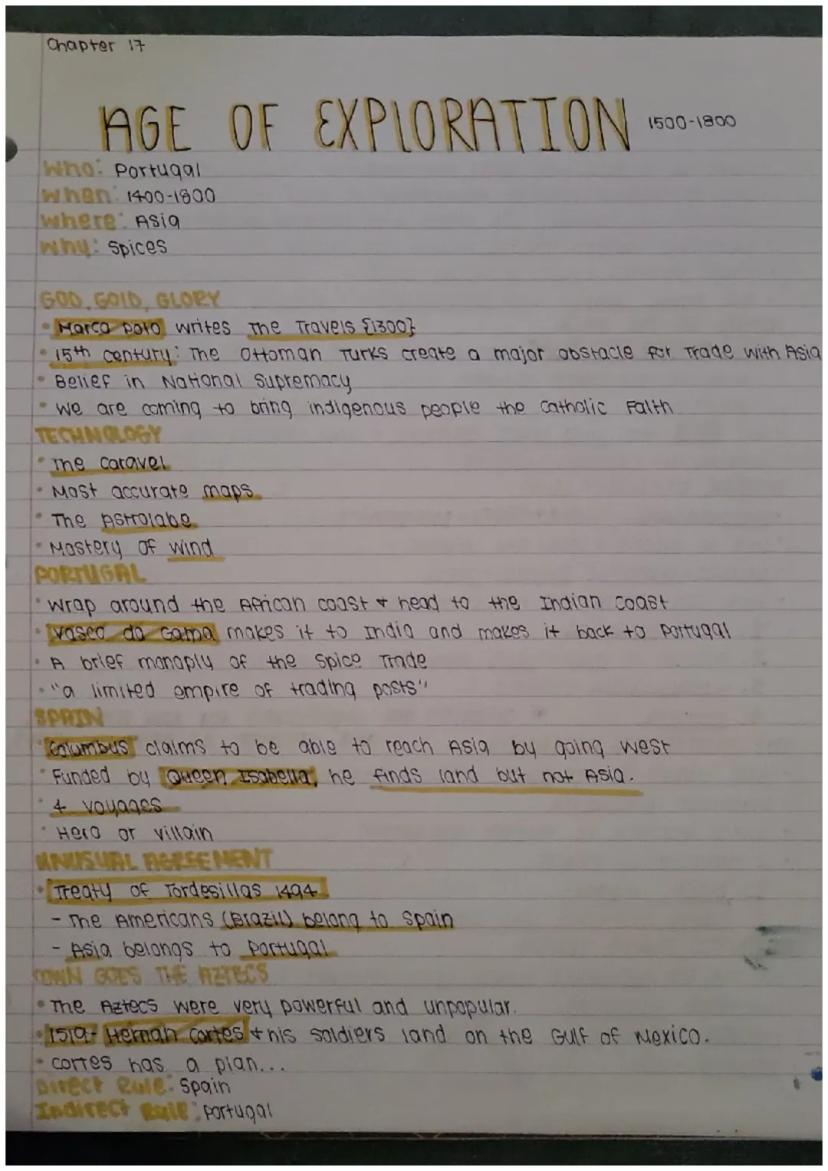 Chapter 17
AGE OF EXPLORATION 1500-1800
Who: Portugal
When: 1400-1800
Where: Asia
Why: Spices
GOD, GOLD, GLORY
• Marco Polo writes The Travels {1300}
• 15th century: The Ottoman Turks create a major obstacle for Trade with Asia
• Belief in National Supremacy
• We are coming to bring indigenous people the Catholic Faith
TECHNOLOGY
• The caravel
• Most accurate maps
• The Astrolabe
• Mastery of wind
PORTUGAL
• Wrap around the African coast & head to the Indian coast
• Vasco da Gama makes it to India and makes it back to Portugal
• A brief monaply of the Spice Trade
• "a limited empire of trading posts"
SPAIN
• Columbus claims to be able to reach Asia by going West
• Funded by Queen Isabella, he finds land but not Asia.
• 4 voyages
• Hero or villain
UNUSUAL AGREEMENT
• Treaty of Tordesillas 1494
- The Americans (Brazil) belong to Spain
- Asia belongs to Portugal
DOWN GOES THE AZTECS
• The Aztecs were very powerful and unpopular.
• 1519- Hernan Cortes & his soldiers land on the Gulf of Mexico.
• Cortes has a plan...
Direct Rule: Spain
Indirect Rule: Portugal